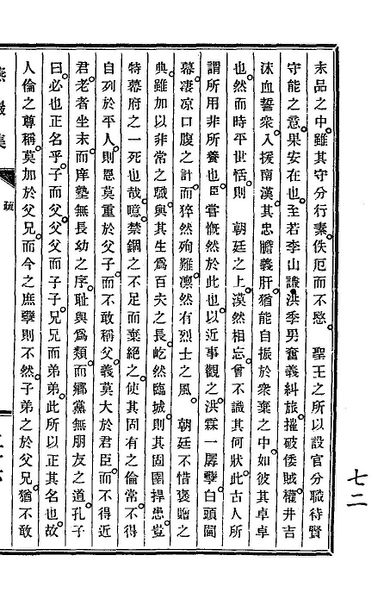 未品之中。雖其守分行素。佚厄而不愍。 聖王之所以設官分職待賢
守能之意。果安在也。至若李山謙洪季男奮義糾旅。摧破倭賊。權井吉
沫血誓衆。入援南漢。其忠膽義肝。猶能自振於衆棄之中。如彼其卓卓
也。然而時平世恬。則 朝廷之上。漠然相忘。曾不識其何狀。此古人所
謂所用非所養也。臣嘗慨然於此也。以近事觀之。洪霖一孱孽。白頭閫
幕。凄凉口腹之計。而猝然殉難。凛然有烈士之風。 朝廷不惜褒贈之
典。雖加以非常之職。與其生爲百夫之長。屹然臨城。則其固圉捍患。豈
特幕府之一死也哉。噫。禁錮之不足而棄絶之。使其固有之倫常。不得
自列於平人。則恩莫重於父子。而不敢稱父。義莫大於君臣。而不得近
君。老者坐末。而庠塾無長幼之序。恥與爲類。而鄕黨無朋友之道。孔子
曰。必也正名乎。子而父父。父而子子。兄兄而弟弟。此所以正其名也。故
人倫之尊稱。莫加於父兄。而今之庶孽則不然。子弟之於父兄。猶不敢
燕巖集
疏
七二